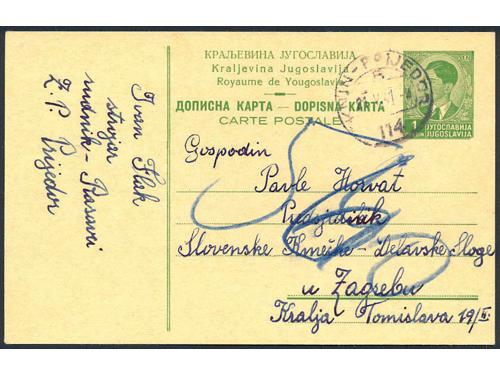 КРАЉЕВИНА ЈУГОСЛАВИЈА
Kraljevina Jugoslavija
Royaume de Yougoslavie
ДОПИСНА КАРТА — DOPISNA KARTA
CARTE POSTALE
1
ЈУГОСЛАВИЈА
JUGOSLAVIJA
PRIJEDOR
114
Ivan Flak
strojar
rudnik-
Z. P. Prijedor
Gospodin
Pavle Horvat
Slovenske Kmečke-Delavske Sloge
u Zagrebu
Kralja Tomislava 19/II